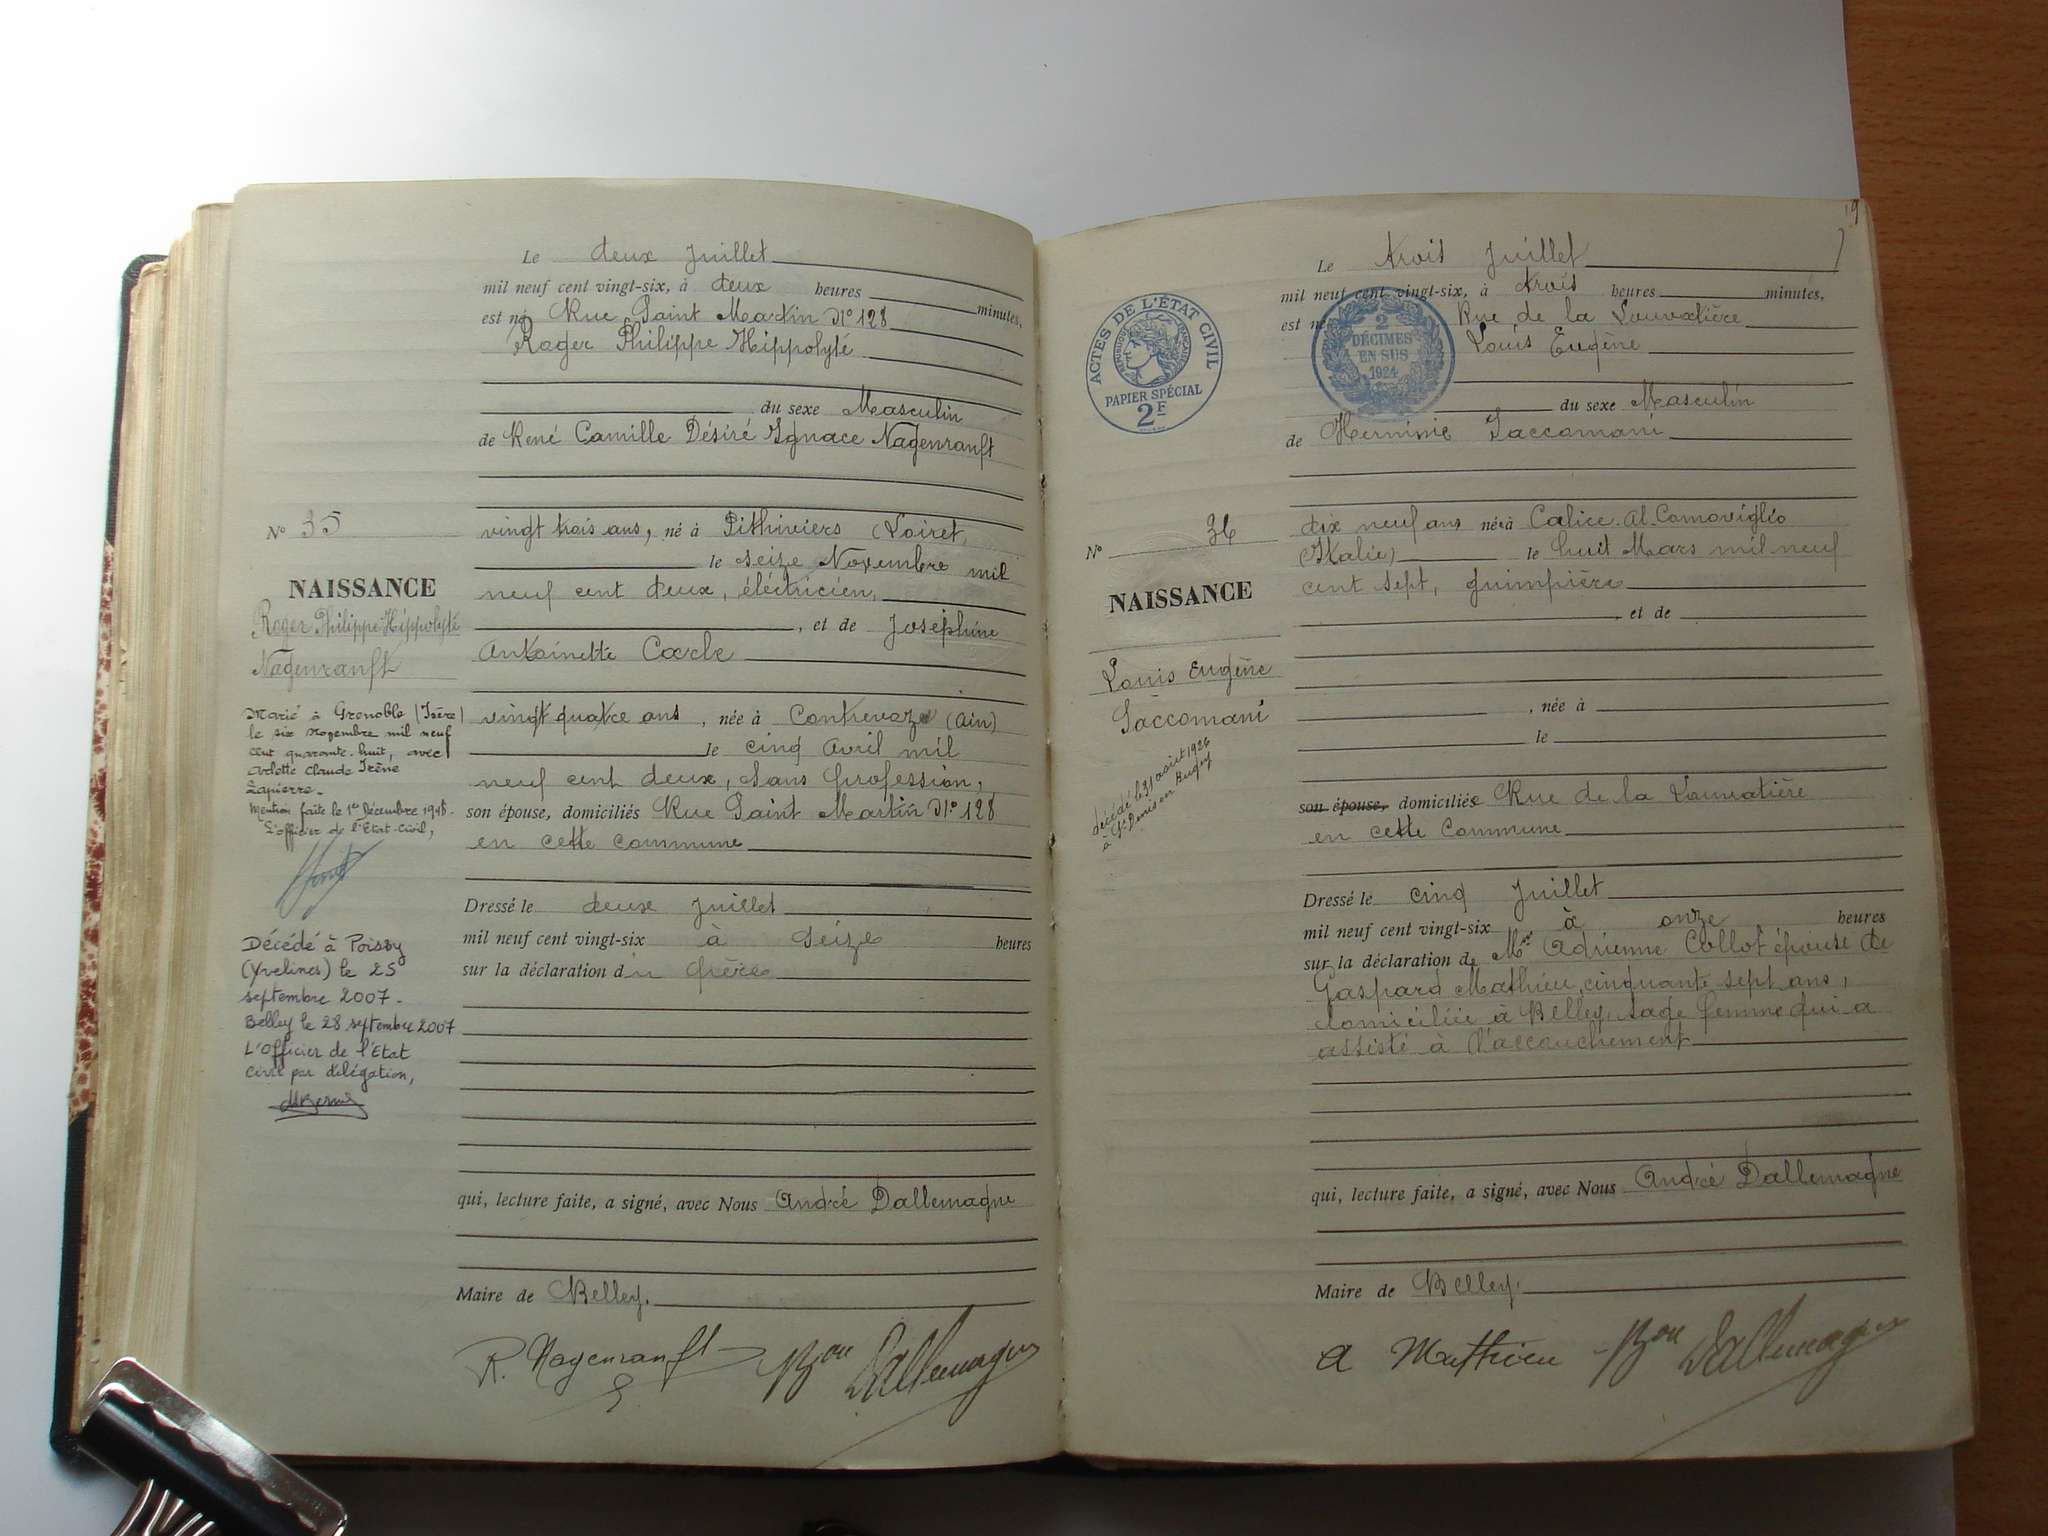 Le deux Juillet
mil neuf cent vingt-six, à deux heures minutes,
est né Rue Saint Martin N° 128
Roger Philippe Hippolyte
du sexe Masculin
de René Camille Désiré Ignace Nagenranft
N° 35
vingt trois ans, né à Pithiviers (Loiret,
le seize Novembre mil
neuf cent deux, électricien,
, et de Joséphine
Antoinette
vingt quatre ans, née à Contrevoz (Ain)
le cinq Avril mil
neuf cent deux, sans profession,
son épouse, domiciliés Rue Saint Martin N° 128
en cette commune
NAISSANCE
Roger Philippe Hippolyte
Nagenranft
Marié à Grenoble (Isère)
le six novembre mil neuf
cent quarante-huit, avec
Arlette Claude Irène
Lapierre.
Mention faite le 1er Décembre 1948.
L'officier de l'Etat-Civil,
Décédé à Poissy
(Yvelines) le 25
septembre 2007.
Belley le 28 septembre 2007
L'Officier de l'Etat
civil par délégation,
Dressé le deux Juillet
mil neuf cent vingt-six à seize heures
sur la déclaration du père
qui, lecture faite, a signé, avec Nous André Dallemagne
Maire de Belley.
R. Nagenranft Bon Dallemagne
19
Le trois Juillet
mil neuf cent vingt-six, à trois heures minutes,
est né Rue de la Louvatière
Louis Eugène
du sexe Masculin
de Herminie Jaccomani
ACTES DE L'ÉTAT CIVIL
RÉPUBLIQUE FRANÇAISE
PAPIER SPÉCIAL
2F
2
DÉCIMES
EN SUS
1924
N° 36
dix neuf ans née à Calice. Al. Cornoviglio
(Italie) le huit Mars mil neuf
cent sept, guimpière
, et de
, née à
le
son épouse, domiciliée Rue de la Louvatière
en cette commune
NAISSANCE
Louis Eugène
Jaccomani
décédé le 31 août 1926
à St Denis en Bugey
Dressé le cinq Juillet
mil neuf cent vingt-six à onze heures
sur la déclaration de Me Adrienne Collot épouse de
Gaspard Mathieu, cinquante sept ans,
domiciliée à Belley, sage femme qui a
assisté à l'accouchement
qui, lecture faite, a signé, avec Nous André Dallemagne
Maire de Belley.
A Mathieu Bon Dallemagne